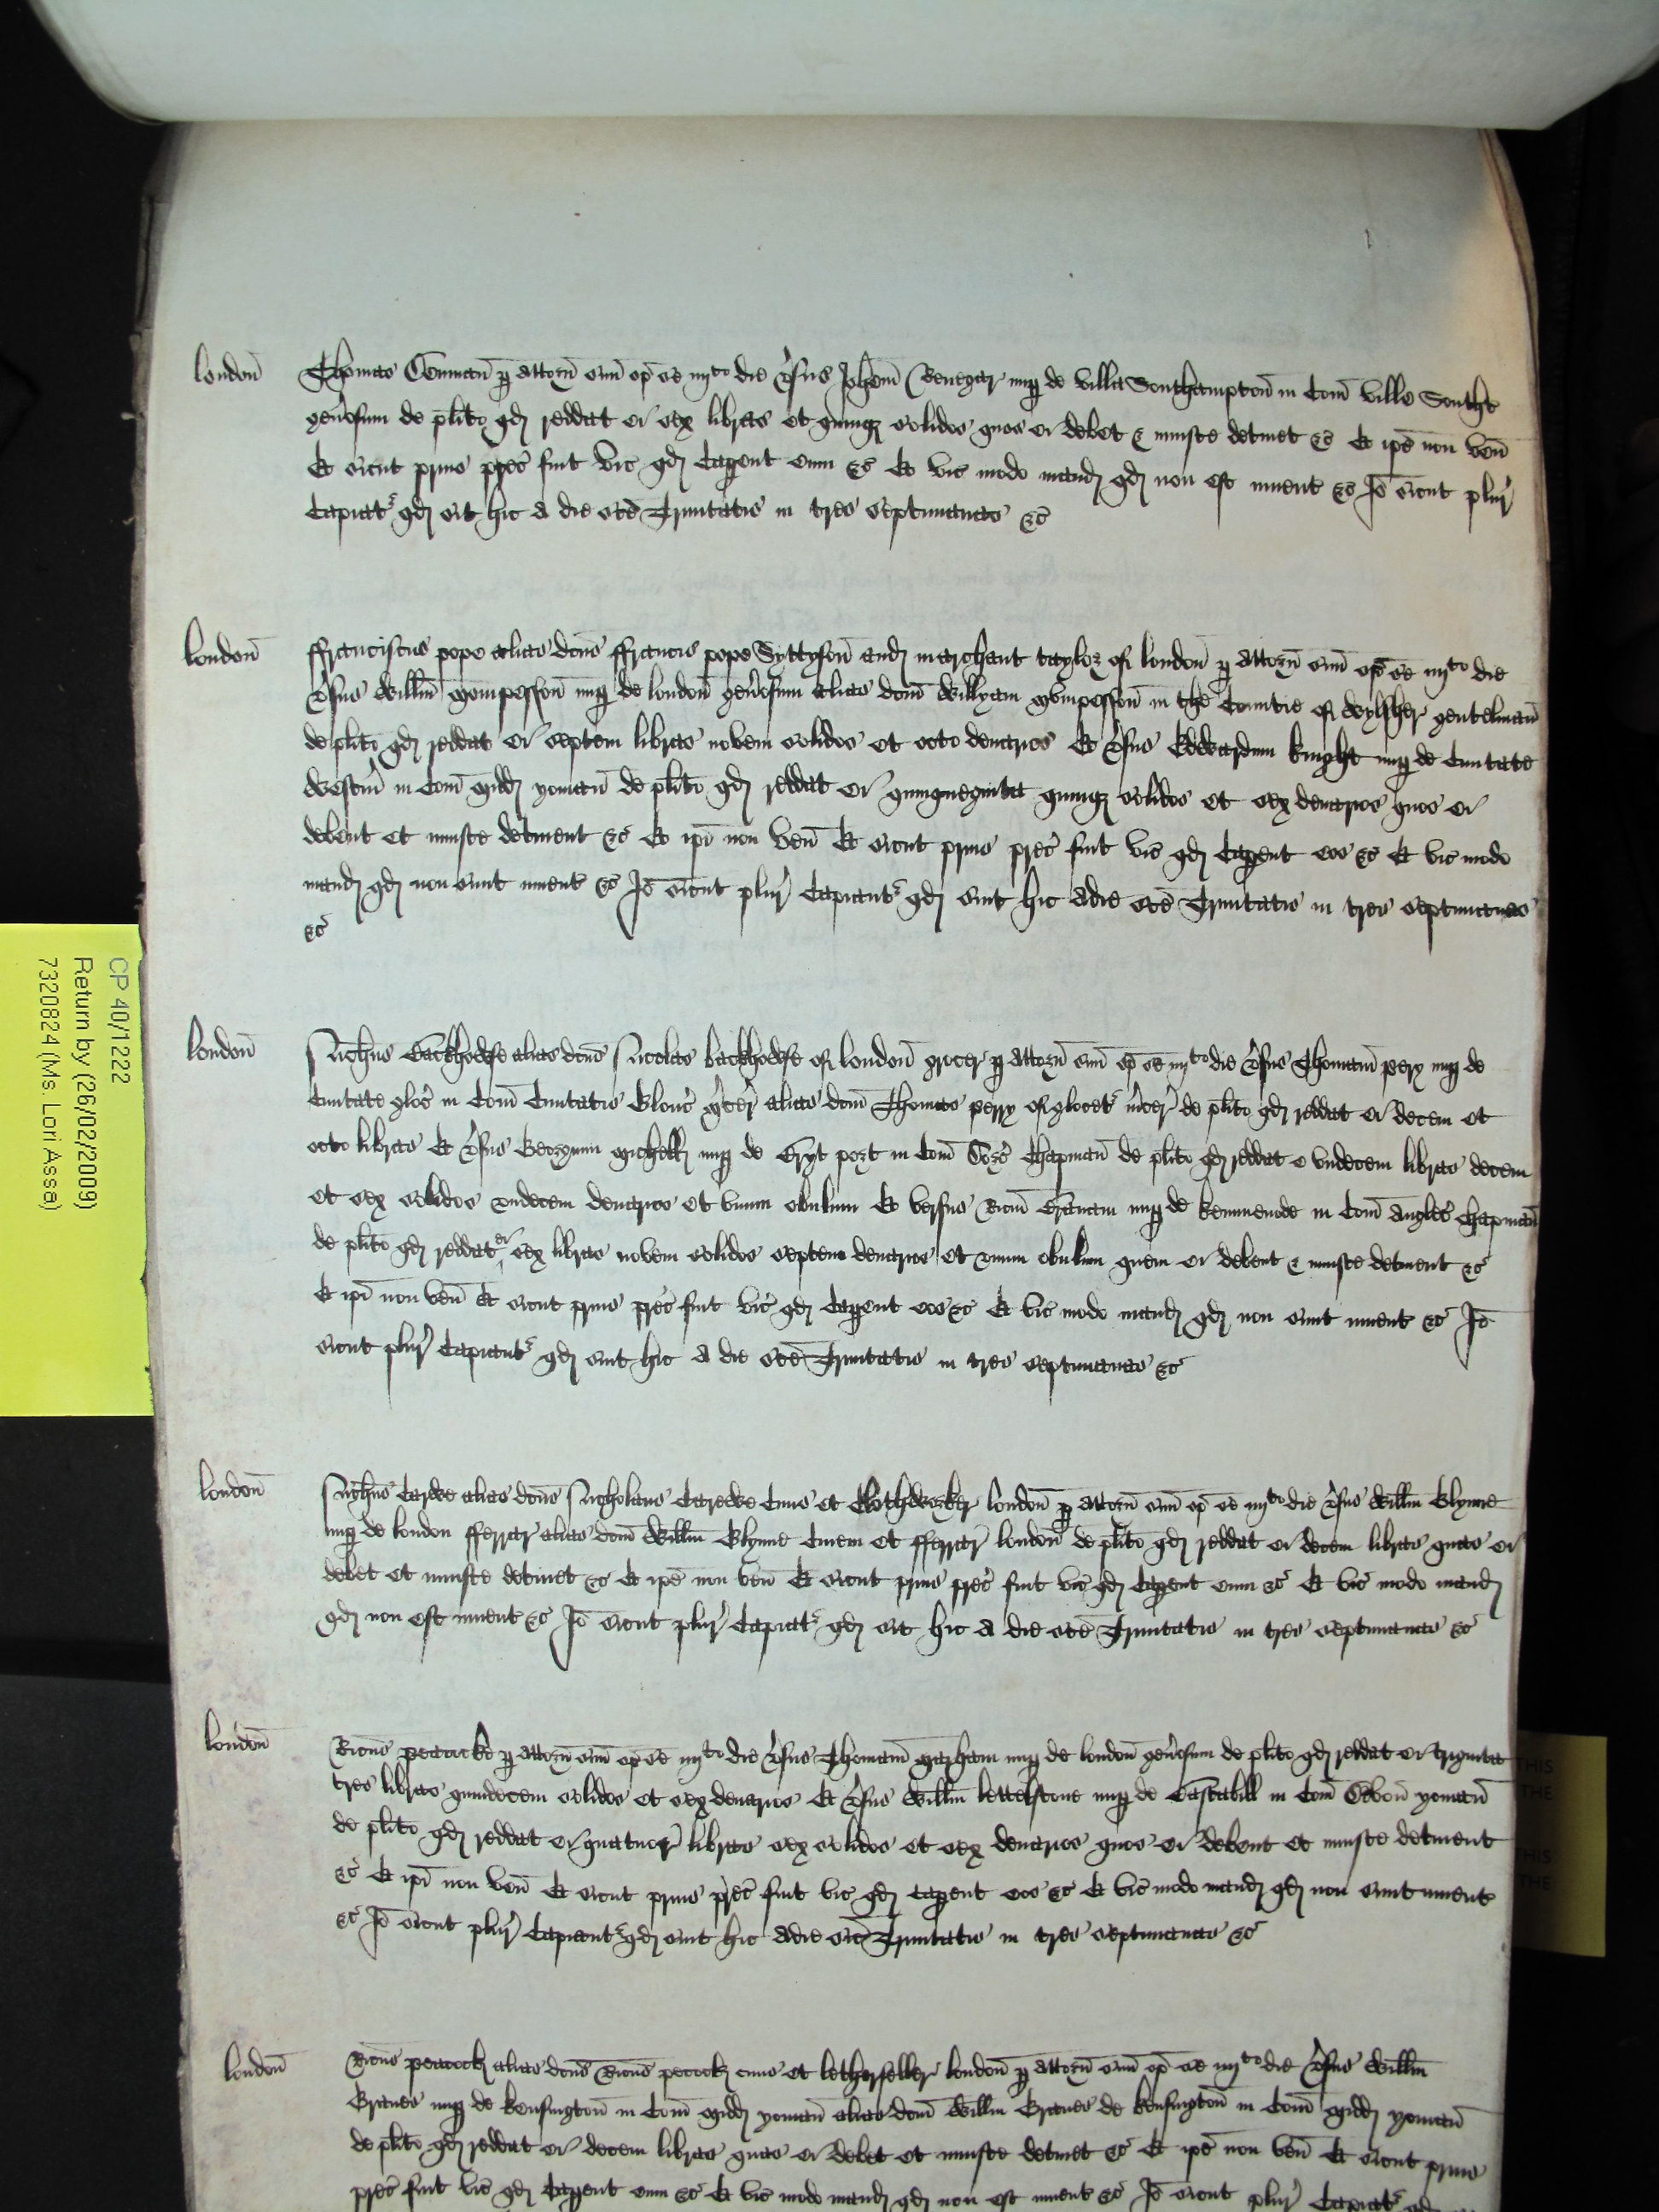 london Thomas
attorn suu op se iiijto die vsus Johem nup de villa Southampton in Com ville Southt
genosum de plito qd reddat ei sex libras et quinq solidos quos ei debet & iniuste detinet &c Et ipe non ven
Et sicut prius prec fuit vic qd caperet eum &c Et vic modo mand qd non est invent &c Io sicut plur
capiatr qd sit hic a die sce Trinitatis in tres septimanas &c
london ffranciscus pope alias dcus ffrancis pope Cyttysen and marchant taylor of london p attorn suu op se iiijto die
vsus Willm Mompesson nup de london genosum alias dcm Willyam Mompesson in the Countie of Wylsher gentelman
de plito qd reddat ei septem libras novem solidos et octo denarios Et vsus Edwardum knyght nup de Ciuitate
Westm in Com Midd yoman de plito qd reddat ei quinquaginta quinq solidos et sex denarios quos ei
debent et iniuste detinent &c Et ipi non ven Et sicut prius prec fuit vic qd caperet eos &c Et vic modo
mand qd non sunt invent &c Io sicut plur capiantr qd sint hic a die sce Trinitatis in tres septimanas
&c
london Nichus Backhowse alias dcus Nicolas backhowse of london grocer p attorn suu op se iiijto die vsus Thomam pery nup de
Ciuitate Glouc in Com Ciuitatis Glouc alias dcm Thomas perry of de plito qd reddat ei decem et
octo libras Et vsus Georgium Michell nup de port in Com chapman de plito qd reddat ei undecem libras decem
et sex solidos undecem denarios et unum obulum Et versus Ricm nup de in Com chapman
de plito qd reddat ei sex libras novem solidos septem denarios et unum obulum quem ei debent & iniuste detinent &c
Et ipi non ven Et sicut prius prec fuit vic qd caperet eos &c Et vic modo mand qd non sunt invent &c Io
sicut plur capiantr qd sint hic a die sce Trinitatis in tres septimanas &c
london Nichus alias dcus Nicholaus Ciuis et Clothworker london p attorn suu op se iiijto die vsus Willm Glynne
nup de london fferrar alias dcm Willm Glynne Ciuem et fferrar london de plito qd reddat ei decem libras quas ei
debet et iniuste detinet &c Et ipe non ven Et sicut prius prec fuit vic qd caperet eum &c Et vic modo mand
qd non est invent &c Io sicut plur capiatr qd sit hic a die sce Trinitatis in tres septimanas &c
london Ricus peacocke p attorn suu op se iiijto die vsus Thomam nup de london genosum de plito qd reddat ei triginta
tres libras quindecem solidos et sex denarios Et vsus Willm nup de in Com Devon yoman
de plito qd reddat ei quatuor libras sex solidos et sex denarios quos ei debent et iniuste detinent
&c Et ipi non ven Et sicut prius prec fuit vic qd caperet eos &c Et vic modo mand qd non sunt invent
&c Io sicut plur capiantr qd sint hic a die sce Trinitatis in tres septimanas &c
london Ricus peacock alias dcus Ricus pecock ciuis et letherseller london p attorn suu op se iiijto die vsus Willm
Graues nup de kensington in Com Midd yoman alias dcm Willm Graues de kensington in Com Midd yoman
de plito qd reddat ei decem libras quas ei debet et iniuste detinet &c Et ipe non ven Et sicut prius
prec fuit vic qd caperet eum &c Et vic modo mand qd non est invent &c Io sicut plur capiatr
CP 40/1222
Return by (26/02/2009)
7320824 (Ms. Lori Assa)
THIS
THE
THIS
THE